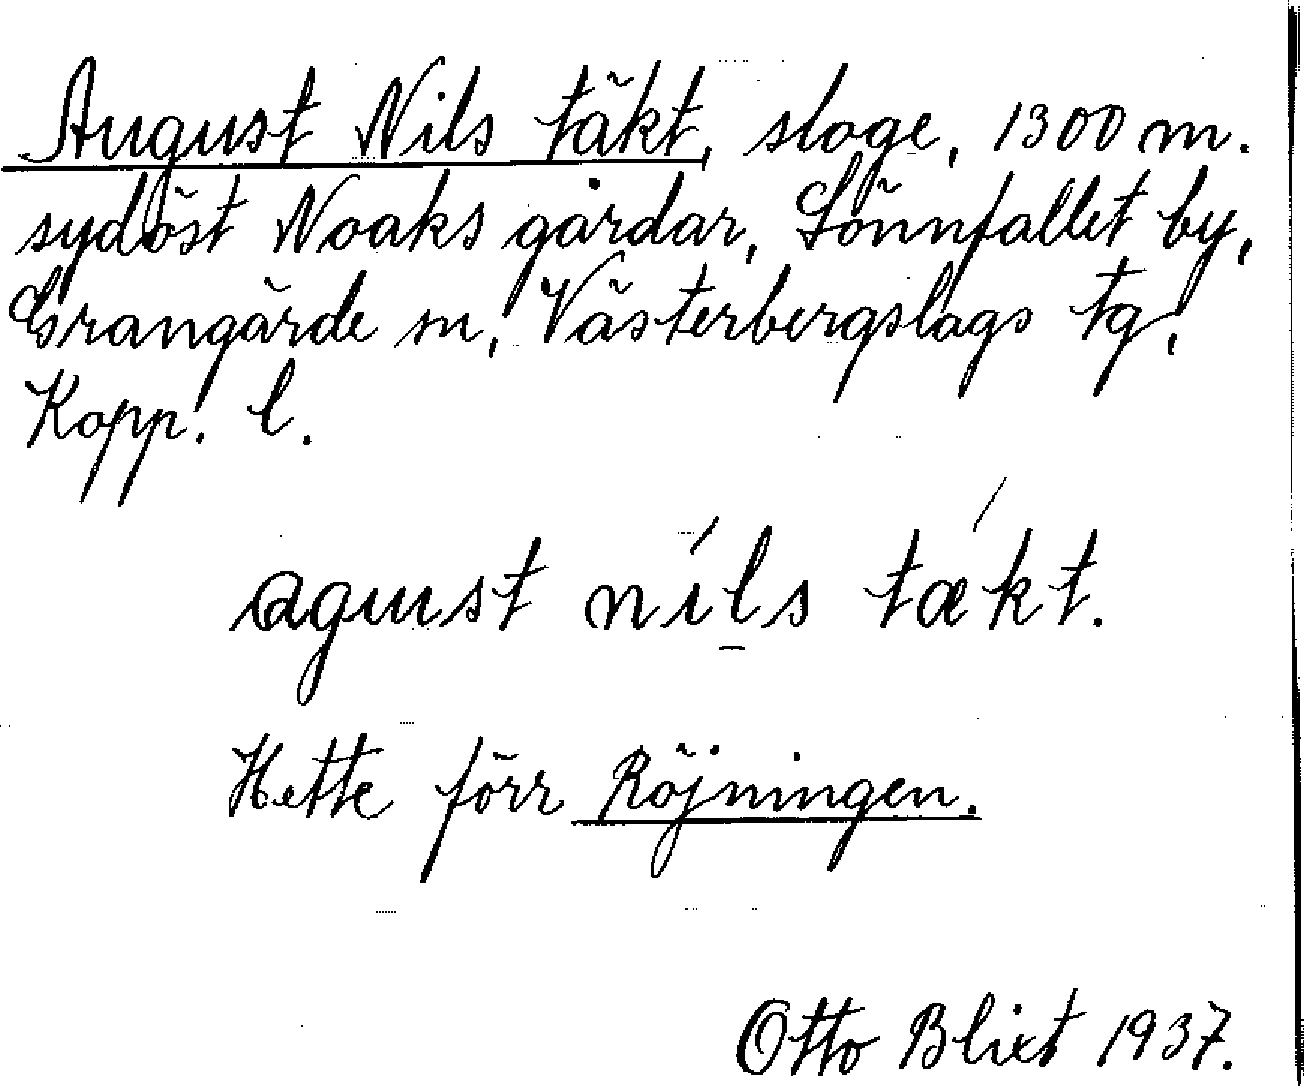 August Nils täkt, sloge, 1300 m.
sydöst Noaks gårdar, Lönnfallet by,
Grangärde sn, Västerbergslags tg,
Kopp. l.
agust níḻs tǽkt.
Hette förr Röjningen.
Otto Blixt 1937.